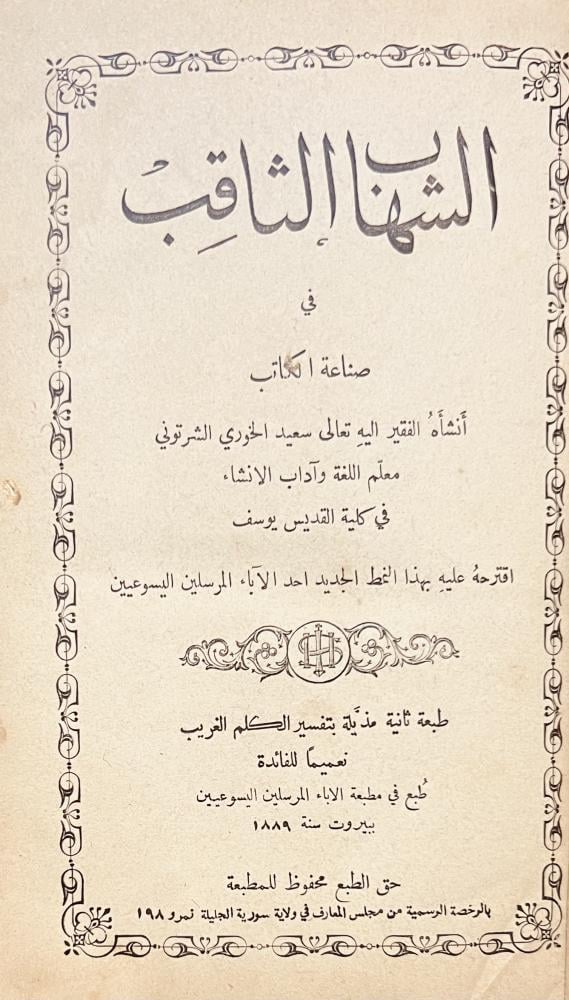 الشهاب الثاقب
في
صناعة الكاتب
أَنشأَهُ الفقير اليهِ تعالى سعيد الخوري الشرتوني
معلّم اللغة وآداب الانشاء
في كلية القديس يوسف
اقترحهُ عليهِ بهذا النمط الجديد احد الآباء المرسلين اليسوعيين
IHS
طبعة ثانية مذيَّلة بتفسير الكلم الغريب
تعميمًا للفائدة
طُبع في مطبعة الاباء المرسلين اليسوعيين
ببيروت سنة ١٨٨٩
حق الطبع محفوظ للمطبعة
بالرخصة الرسمية من مجلس المعارف في ولاية سورية الجليلة نمرو ١٩٨